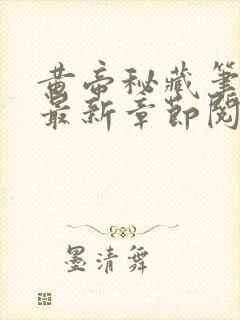 黄帝秘藏笔
最新章节阅
墨清舞